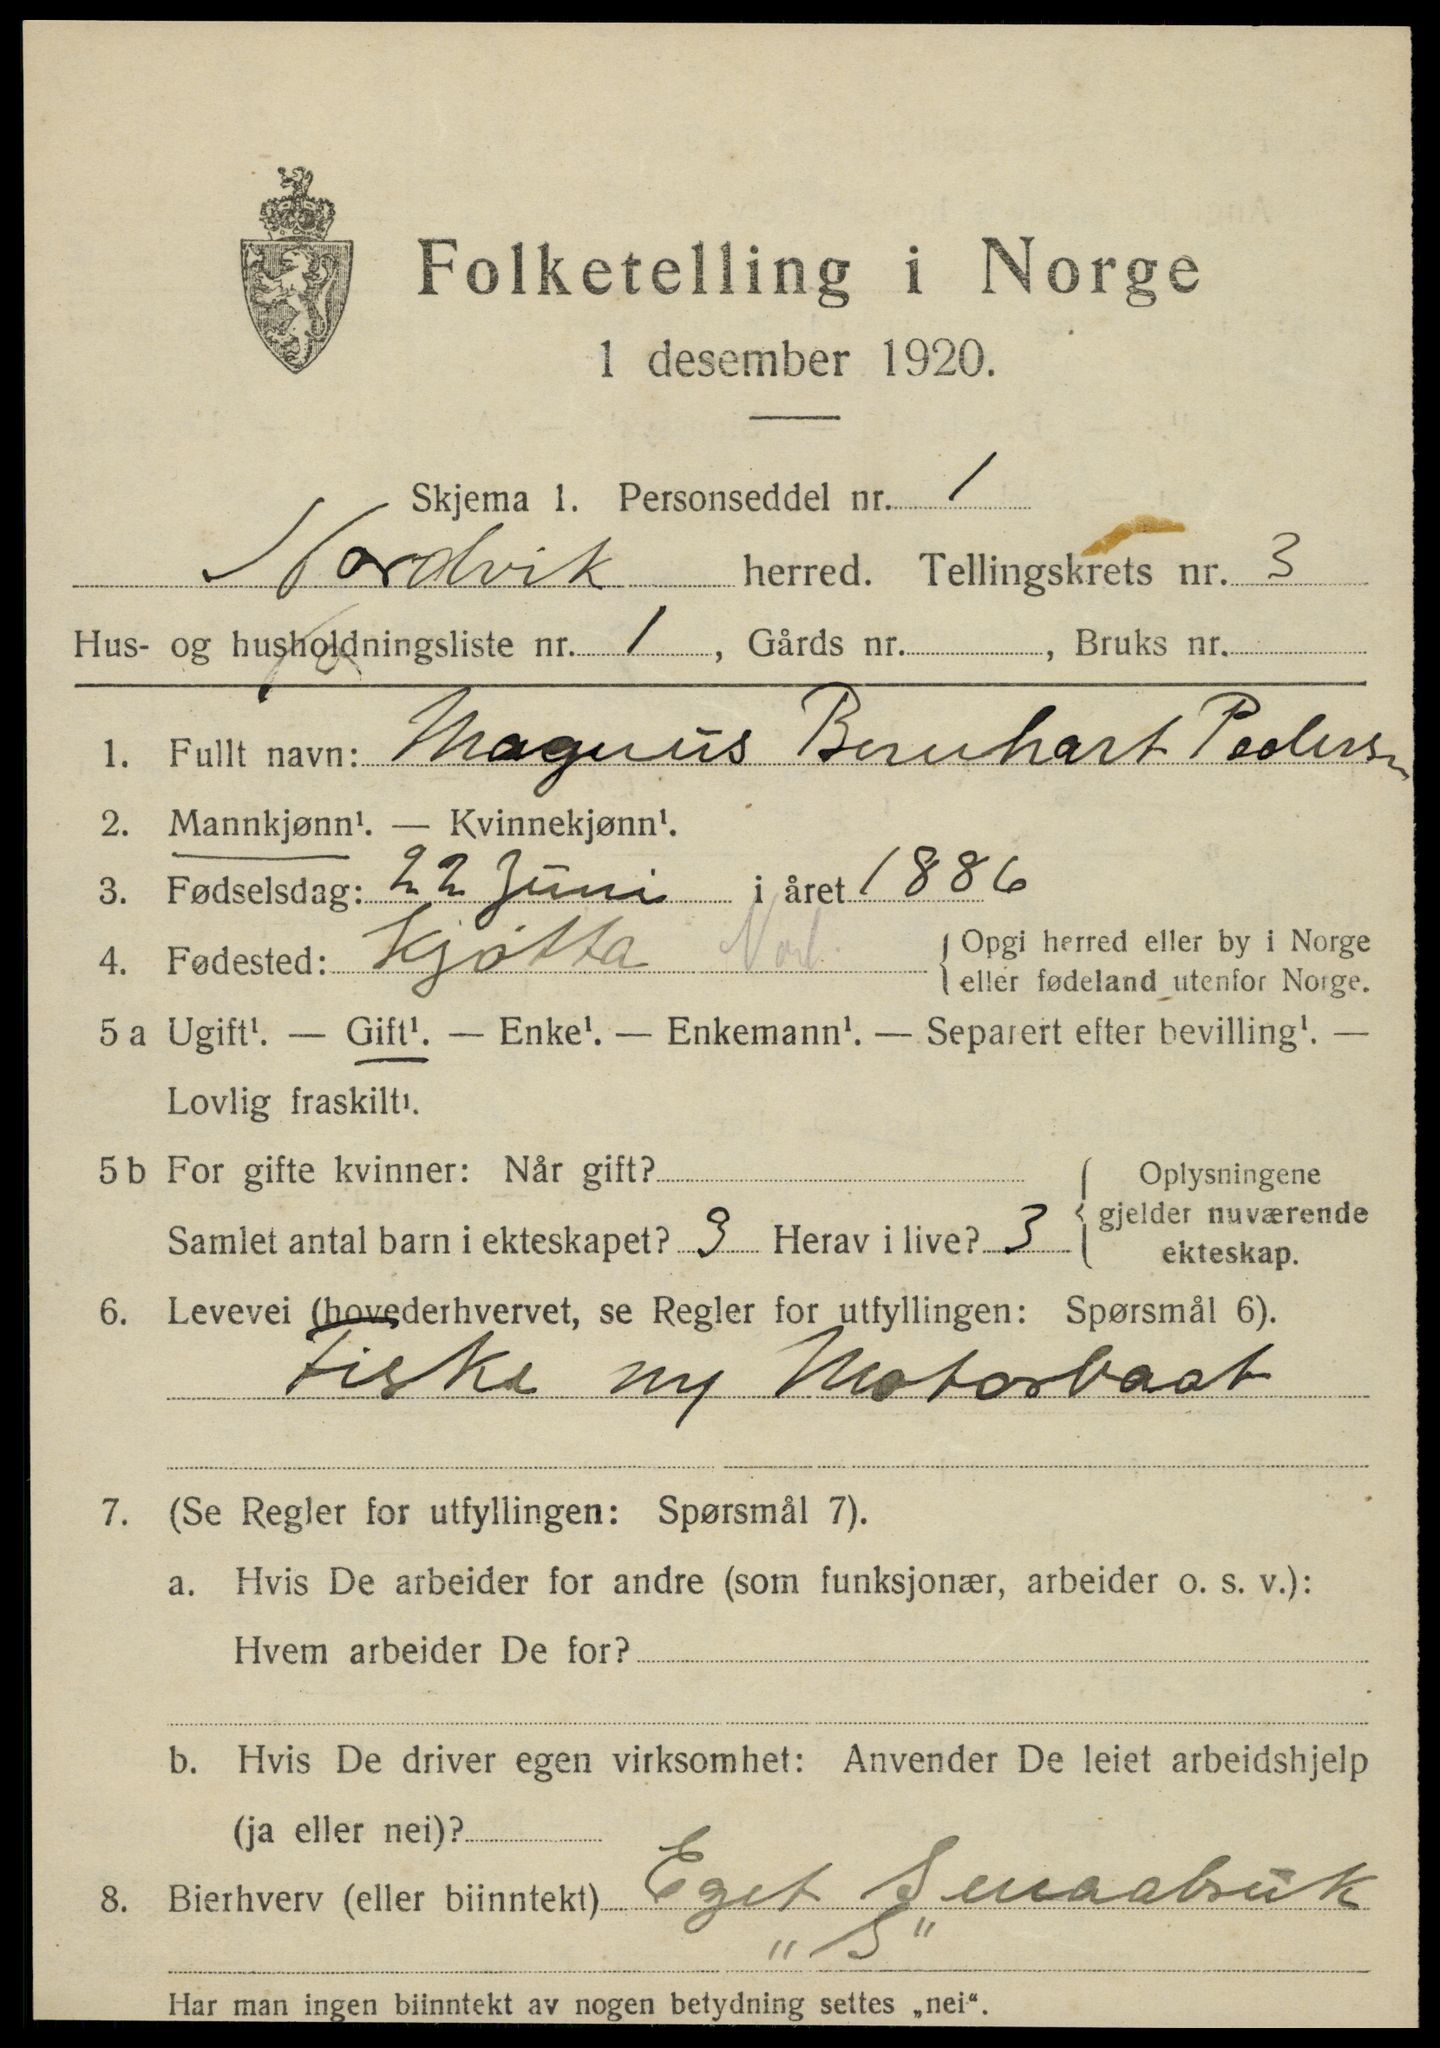 Folketelling i Norge
1 desember 1920.
Skjema 1. Personseddel nr. 1
Nordvik herred. Tellingskrets nr. 3
Hus- og husholdningsliste nr. 1, Gårds nr. , Bruks nr.
1. Fullt navn: Magnus Bernhart Pedersn
2. Mannkjønn¹. — Kvinnekjønn¹.
3. Fødselsdag: 22 Juni i året 1886
4. Fødested: Tjøtta Nord. { Opgi herred eller by i Norge
eller fødeland utenfor Norge.
5 a Ugift¹. — Gift¹. — Enke¹. — Enkemann¹. — Separert efter bevilling¹. —
Lovlig fraskilt¹.
5 b For gifte kvinner: Når gift?
Samlet antal barn i ekteskapet? 3 Herav i live? 3
{ Oplysningene
gjelder nuværende
ekteskap.
6. Levevei (hovederhvervet, se Regler for utfyllingen: Spørsmål 6).
Fiske Motorbaat
7. (Se Regler for utfyllingen: Spørsmål 7).
a. Hvis De arbeider for andre (som funksjonær, arbeider o. s. v.):
Hvem arbeider De for?
b. Hvis De driver egen virksomhet: Anvender De leiet arbeidshjelp
(ja eller nei)?
8. Bierhverv (eller biinntekt) Eget Smaabruk
"S"
Har man ingen biinntekt av nogen betydning settes „nei“.